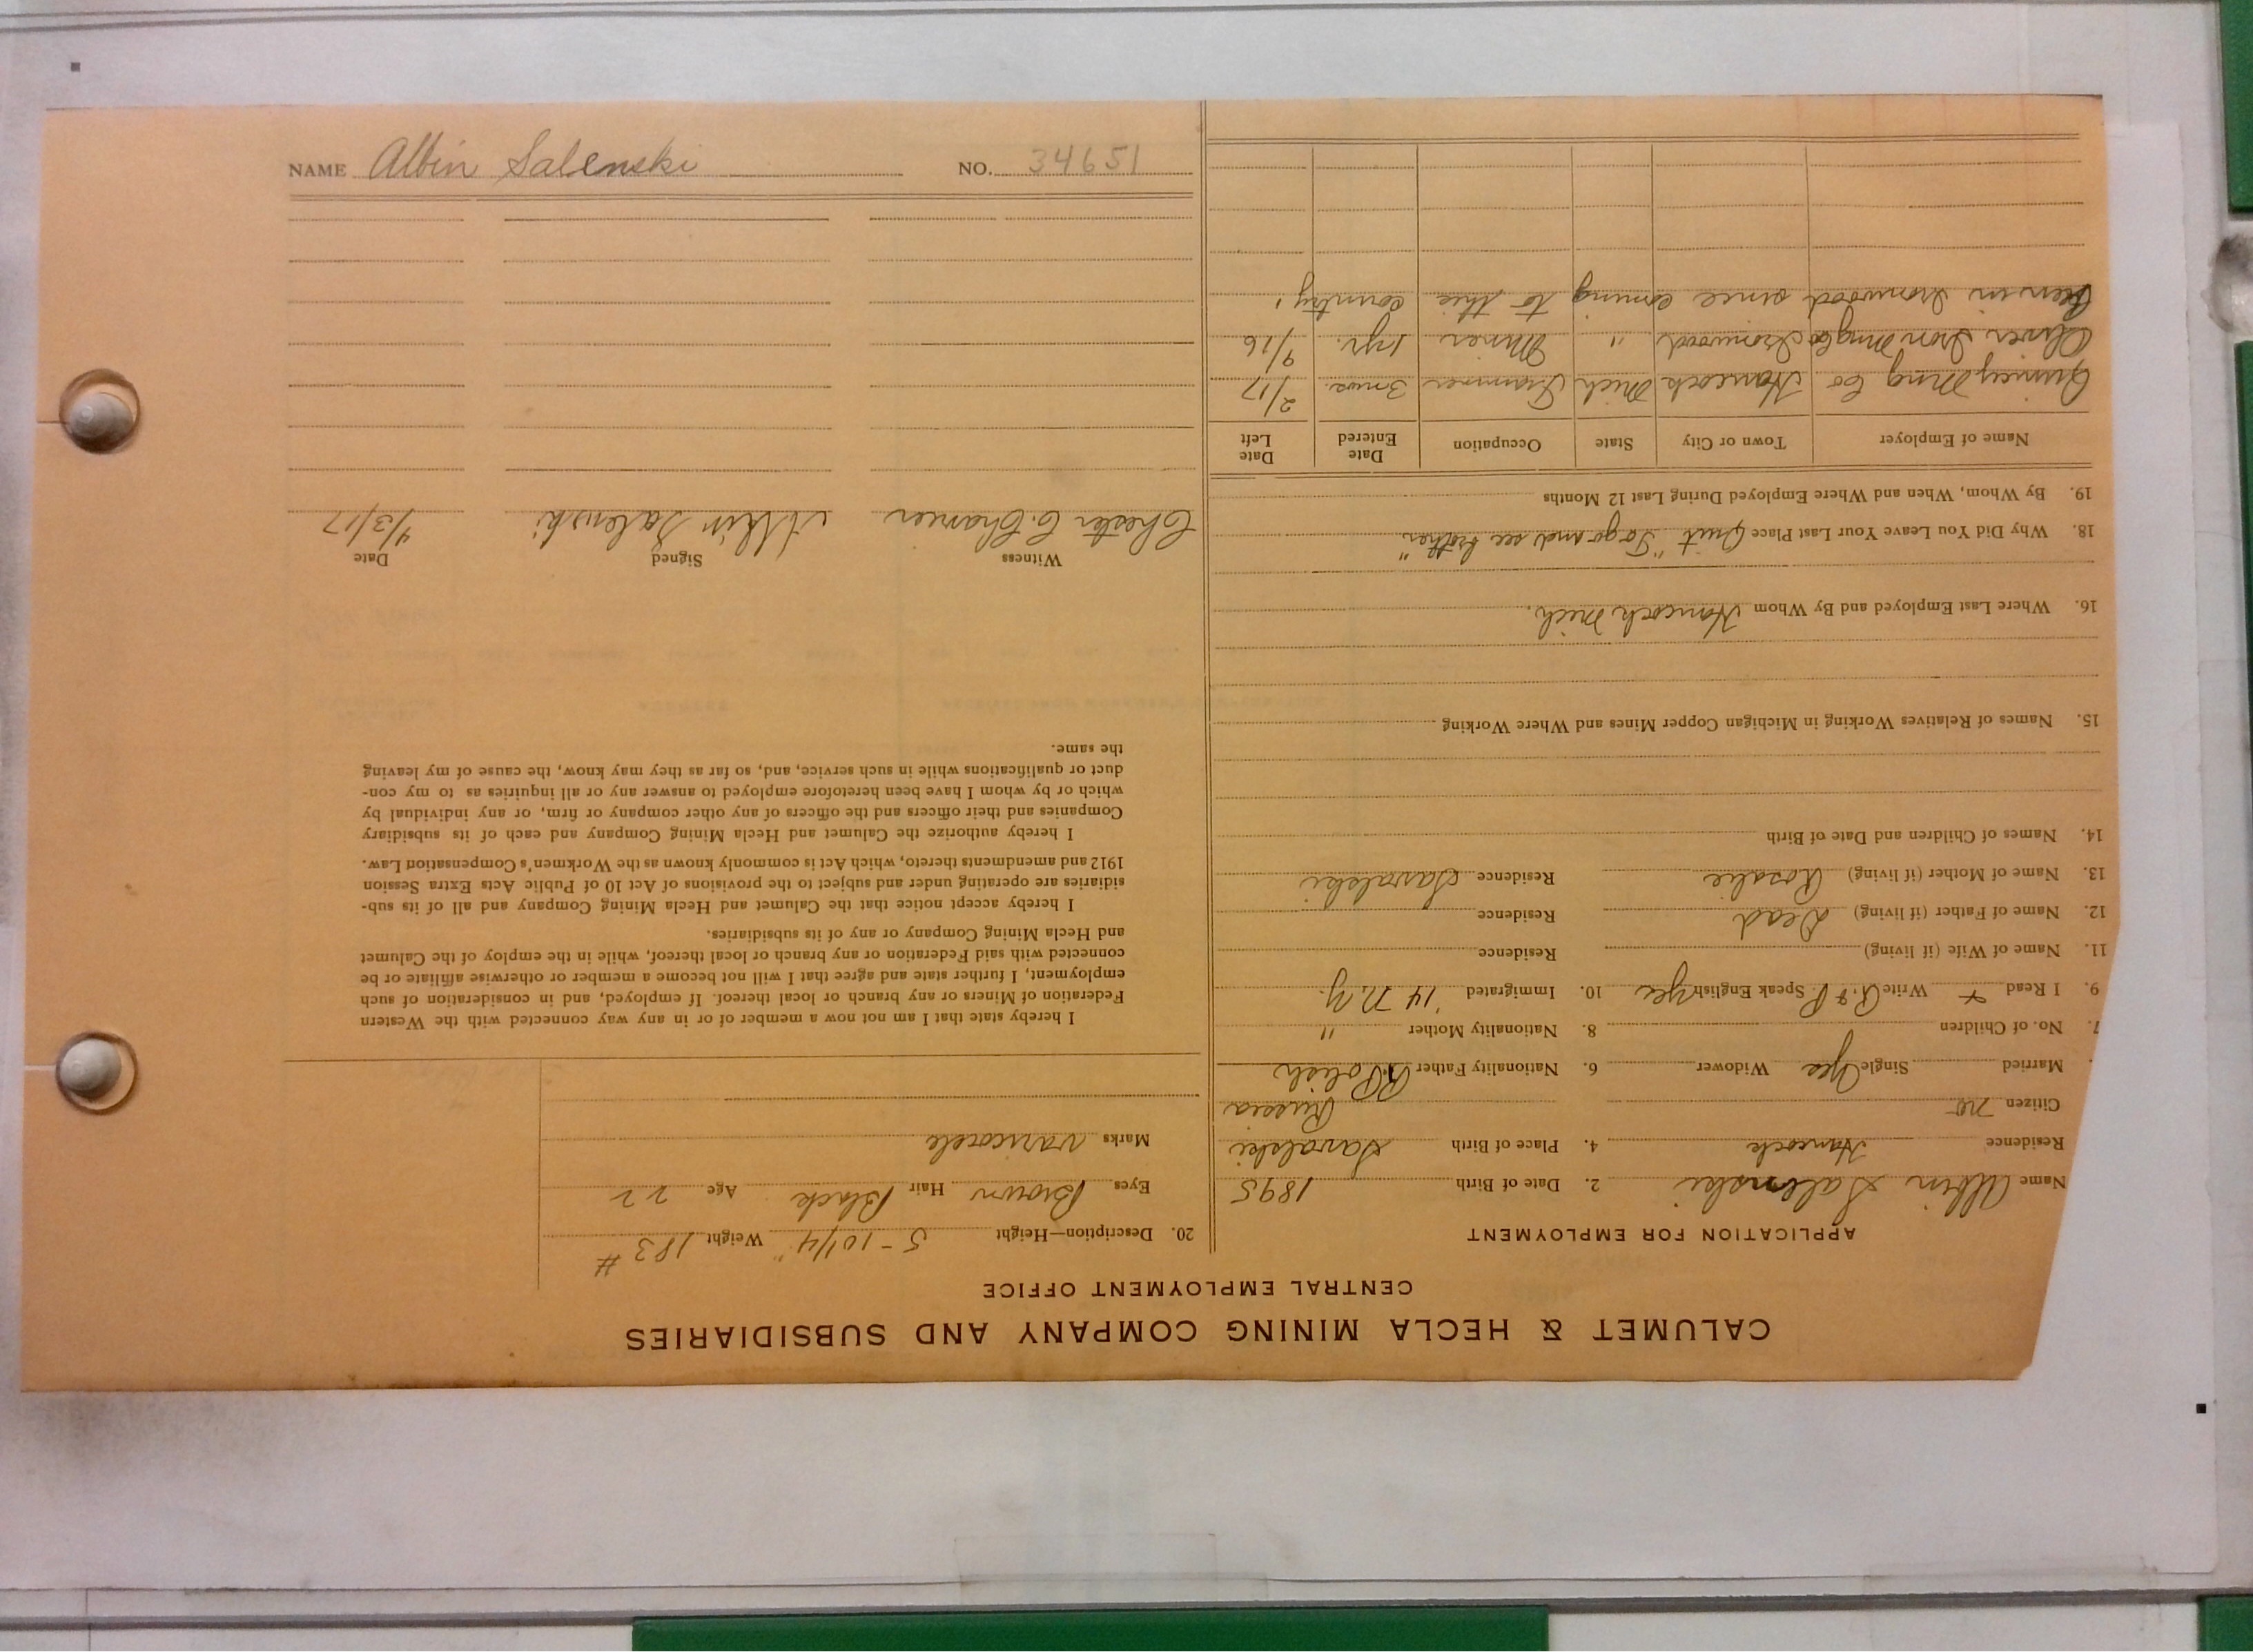 NAME Albin Salenski NO. 34651
CALUMET & HECLA MINING COMPANY AND SUBSIDIARIES
CENTRAL EMPLOYMENT OFFICE
APPLICATION FOR EMPLOYMENT
Name Albin Salenski 2. Date of Birth 1895
Residence Hancock 4. Place of Birth Savalski
Citizen no Russia
Married Single Yes Widower 6. Nationality Father R. Polish
7. No. of Children 8. Nationality Mother "
9. I Read x Write R. & P. Speak English Yes 10. Immigrated '14 N.Y.
11. Name of Wife (if living) Residence
12. Name of Father (if living) Dead Residence
13. Name of Mother (if living) Rosalie Residence Savalski
14. Names of Children and Date of Birth
15. Names of Relatives Working in Michigan Copper Mines and Where Working
16. Where Last Employed and By Whom Hancock Mich.
18. Why Did You Leave Your Last Place Quit "To go and see brother"
19. By Whom, When and Where Employed During Last 12 Months
Name of Employer Town or City State Occupation Date Entered Date Left
Quincy Mng Co Hancock Mich Trammer 3 mos. 2/17
Oliver Iron Mng Co Ironwood " Miner 1 yr. 9/16
Been in Ironwood since coming to this country!
20. Description—Height 5-10 1/4" Weight 183 #
Eyes Brown Hair Black Age 22
Marks Varicocele
I hereby state that I am not now a member of or in any way connected with the Western
Federation of Miners or any branch or local thereof. If employed, and in consideration of such
employment, I further state and agree that I will not become a member or otherwise affiliate or be
connected with said Federation or any branch or local thereof, while in the employ of the Calumet
and Hecla Mining Company or any of its subsidiaries.
I hereby accept notice that the Calumet and Hecla Mining Company and all of its sub-
sidiaries are operating under and subject to the provisions of Act 10 of Public Acts Extra Session
1912 and amendments thereto, which Act is commonly known as the Workmen's Compensation Law.
I hereby authorize the Calumet and Hecla Mining Company and each of its subsidiary
Companies and their officers and the officers of any other company or firm, or any individual by
which or by whom I have been heretofore employed to answer any or all inquiries as to my con-
duct or qualifications while in such service, and, so far as they may know, the cause of my leaving
the same.
Witness Signed Date
Chester C. Albin Salenski 4/3/17